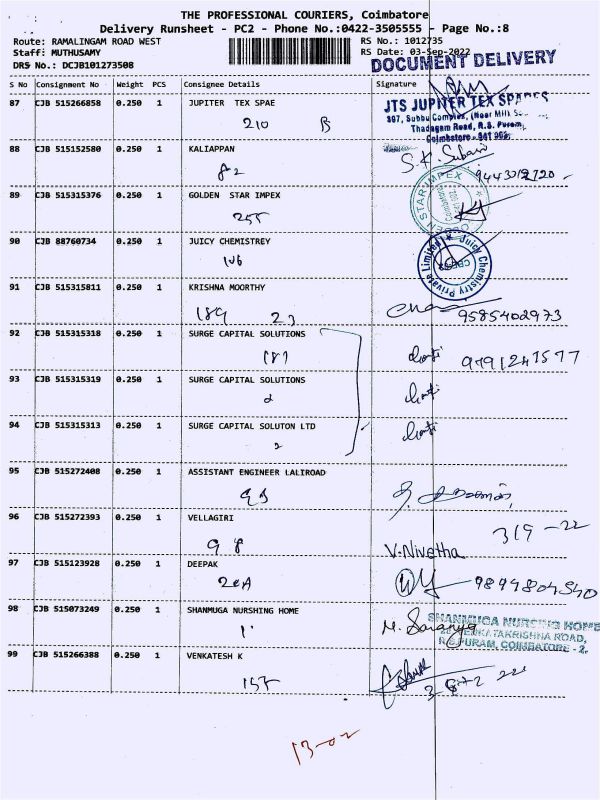 THE PROFESSIONAL COURIERS, Coimbatore
Delivery Runsheet - PC2 - Phone No.:0422-3505555 - Page No.:8
Route: RAMALINGAM ROAD WEST
RS No.: 1012735
Staff: MUTHUSAMY
RS Date: 03-Sep-2022
DRS No.: DCJB101273508
DOCUMENT DELIVERY
S No Consignment No Weight PCS Consignee Details Signature
87 CJB 515266858 0.250 1 JUPITER TEX SPAE
210 B
JTS JUPITER TEX SPARES
397, Subbu Complex, (Near Mill)
Thadagam Road, R.S. Puram,
Coimbatore - 641 002.
88 CJB 515152580 0.250 1 KALIAPPAN
82
S.K. Subani
9443012720
89 CJB 515315376 0.250 1 GOLDEN STAR IMPEX
255
GOLDEN STAR IMPEX
90 CJB 88760734 0.250 1 JUICY CHEMISTREY
106
Juicy Chemistry Private Limited
91 CJB 515315811 0.250 1 KRISHNA MOORTHY
189 23
9585402973
92 CJB 515315318 0.250 1 SURGE CAPITAL SOLUTIONS
187
9791241577
93 CJB 515315319 0.250 1 SURGE CAPITAL SOLUTIONS
94 CJB 515315313 0.250 1 SURGE CAPITAL SOLUTON LTD
95 CJB 515272408 0.250 1 ASSISTANT ENGINEER LALIROAD
96 CJB 515272393 0.250 1 VELLAGIRI
98
3/9-22
V.Nivetha
97 CJB 515123928 0.250 1 DEEPAK
20A
9894804540
98 CJB 515073249 0.250 1 SHANMUGA NURSHING HOME
M. Saranya
SHANMUGA NURSING HOME
VENKATAKRISHNA ROAD,
R.S. PURAM, COIMBATORE - 2.
99 CJB 515266388 0.250 1 VENKATESH K
155
13-02